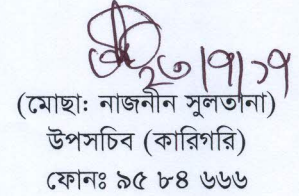 ২৩/৭/১৭
(মোছা: নাজনীন সুলতানা)
উপসচিব (কারিগরি)
ফোনঃ ৯৫ ৮৪ ৬৬৬